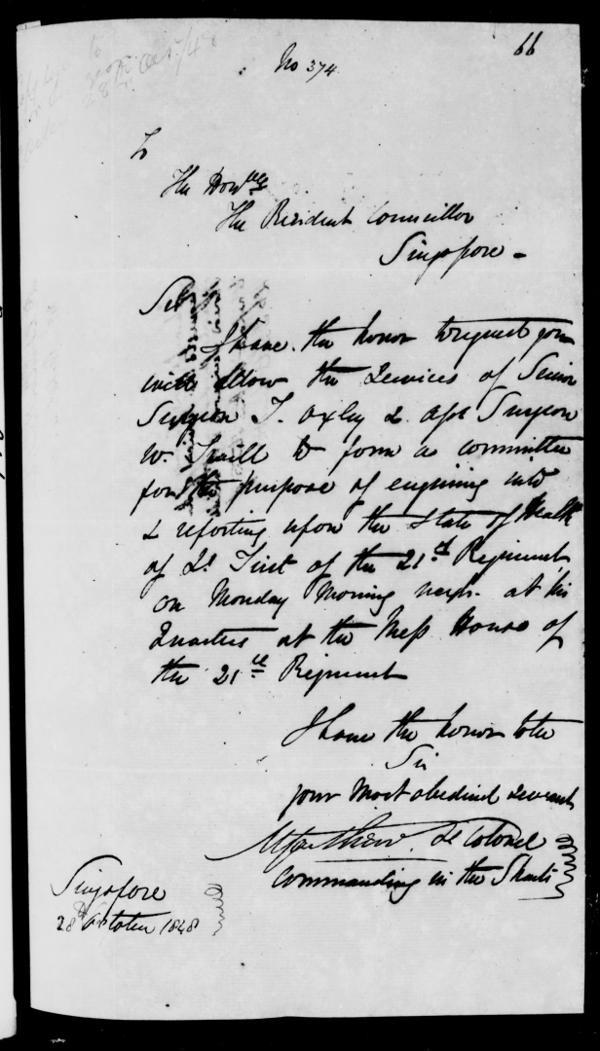 66
No 374
To
The Honble
The Resident Councillor
Singapore -
Sir
I have the honor to request you
will allow the Services of Senior
Surgeon T. Oxley & Asst Surgeon
W. Traill to form a committee
for the purpose of enquiring into
& reporting upon the State of Health
of Lt of the 21st Regiment,
on Monday Morning next at his
Quarters at the Mess House of
the 21st Regiment
I have the honor to be
Sir
your most obedient Servant
Lt Colonel
Commanding in the Straits
Singapore
28th October 1848